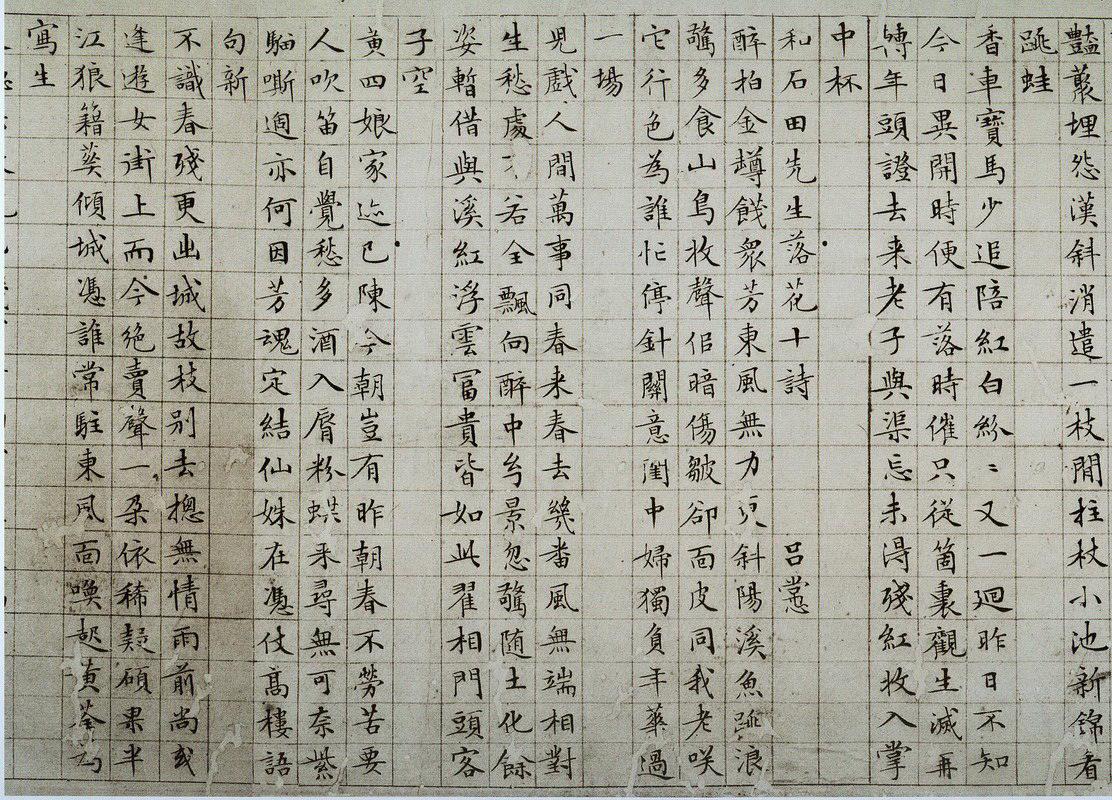 豔叢埋怨漢斜消遣一枝閒拄杖小池新錦看
跳蛙
香車寶馬少追陪紅白紛〻又一迴昨日不知
今日異開時便有落時催只從箇裏觀生滅再
轉年頭證去来老子與渠忘未得殘紅收入掌
中杯
和石田先生落花十詩 呂㦂
醉拍金罇餞衆芳東風無力斜陽溪魚跳浪
驚多食山鳥收聲佀暗傷皺卻面皮同我老咲
它行色為誰忙停針關意閨中婦獨負年華過
一場
児戲人間萬事同春来春去幾番風無端相對
生愁處不若全飄向醉中弓景忽驚随土化餘
姿暫借與溪紅浮雲冨貴皆如此翟相門頭客
子空
黄四娘家迹已陳今朝豈有昨朝春不勞苦要
人吹笛自覺愁多酒入脣粉蜨来尋無可奈紫
騮嘶過亦何因芳魂定結仙姝在憑仗髙樓語
句新
不識春殘更出城故枝别去摠無情雨前尚或
逢遊女街上而今絶賣聲一朶依稀疑碩果半
江狼籍葬傾城憑誰常駐東風面喚起黄荃為
寫生